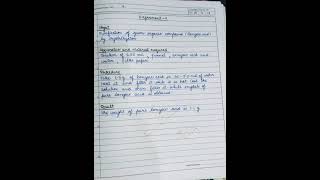 Experiment-1
Aim:
Purification of given organic compound (benzoic acid)
by crystallisation
Apparatus and material required
funnel, benzoic acid and
water, filter paper
Procedure
Take 1-2 g of benzoic acid in 20 ml of water
heat it and filter it while it is hot. Cool the
solution and then filter it. White crystals of
pure benzoic acid is obtained
Result
The weight of pure benzoic acid is